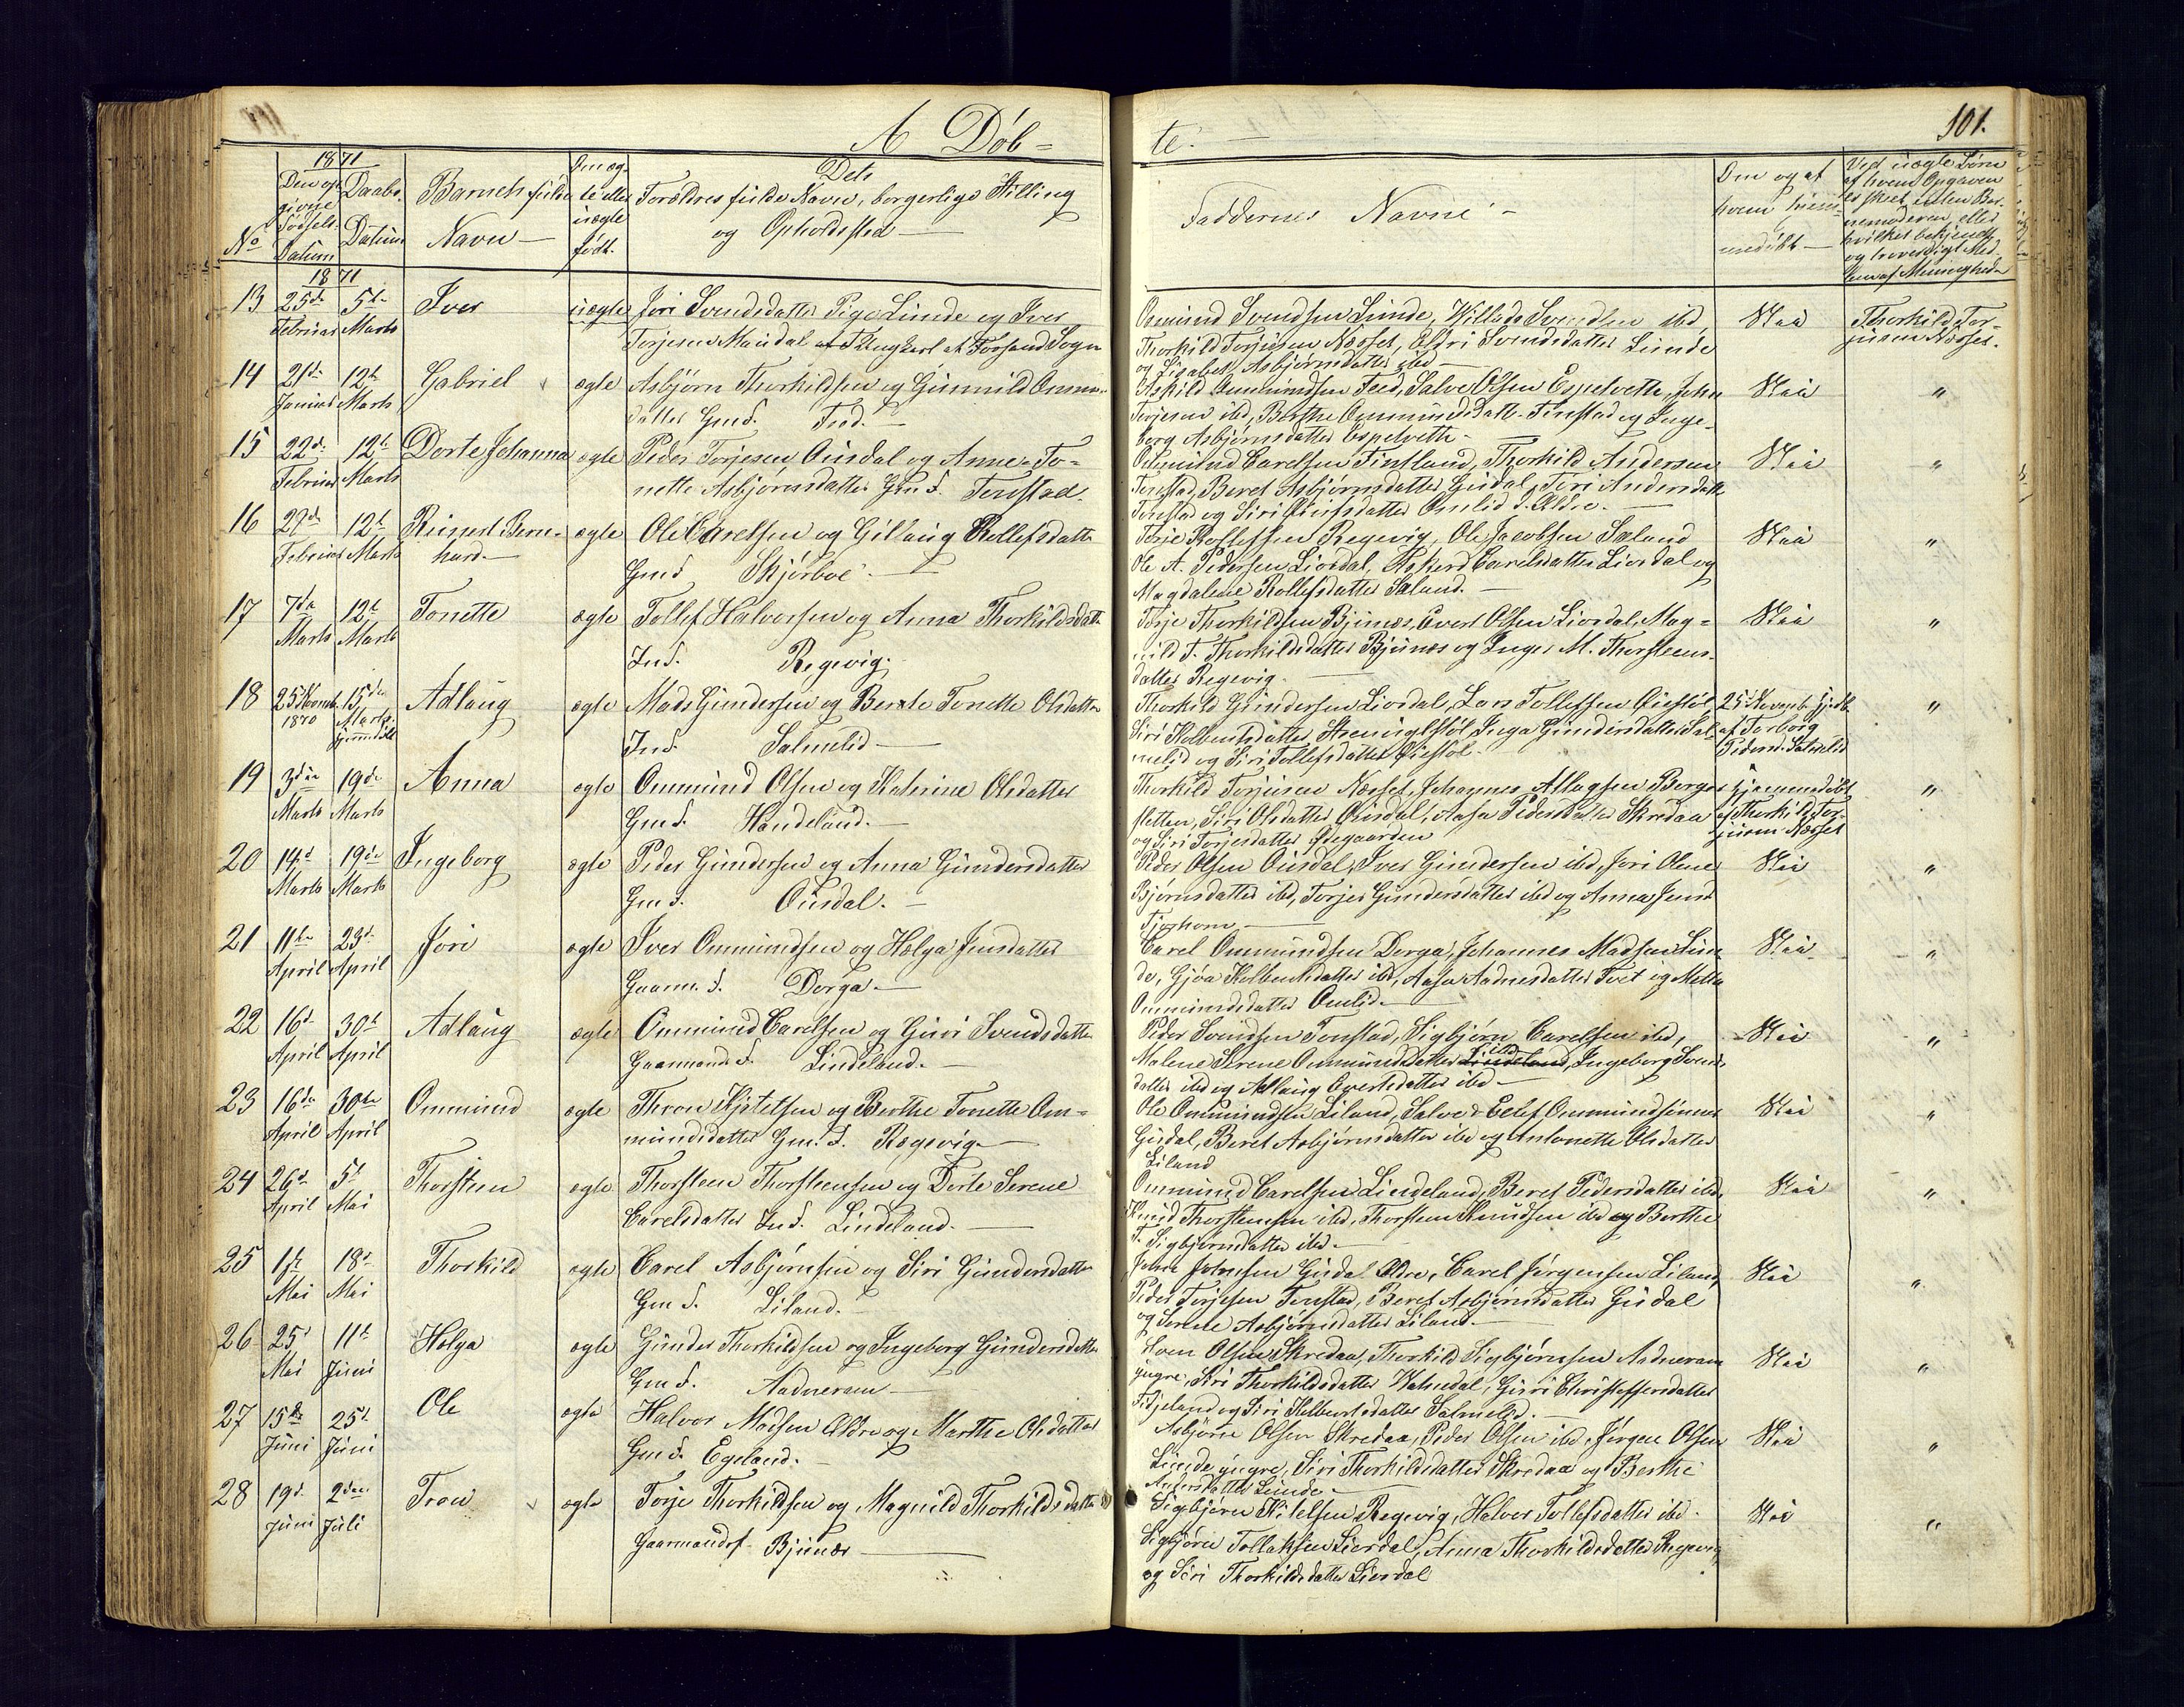 A Døb-
te.
101.
1871
No
Den opgivne Fødsels Datum
Daabs Datum
Barnets fulde Navn
Om ægte eller uægte født.
Dets Forældres fulde Navn, borgerlige Stilling og Opholdssted
Faddernes Navne
Om og af hvem hjemmedøbt
1871
13 25de Februar 5te Marts Iver uægte Jøri Svendsdatter Pige Lunde og Iver
Torjesen Mandal Ungkarl af Forsand Sogn
Omund Svendsen Lunde, Svendsen ibd,
Thorkild Torjusen Næsset, Eldri Svendsdatter Lunde
og Lisabet Asbjørnsdatter ibd
Nei
Thorkild Torjusen Næsset.
14 21de Januar 12te Marts Gabriel ægte Asbjørn Thorkildsen og Gunnild Ommundsdatter Gmd. Fed.
Askild Ommundsen Feed, Salve Olsen Espetveth, John
Torjesen ibd, Berthe Ommundsdatter Tonstad og Ingeborg Asbjørnsdatter Espetveth
Nei "
15 22de Februar 12te Marts Dorte Johanna ægte Peder Torjesen Ousdal og Anne Tonette Asbjørnsdatter Gmd. Tonstad.
Ommund Carelsen Fintland, Thorkild Andersen
Tonstad, Beret Asbjørnsdatter Gusdal, Jøri Andersdatter
Tonstad og Siri Omlid
Nei "
16 12te Februar Marts Bernhard ægte Ole Carelsen og Gitlaug Rollefsdatter
Gmd Skjerboe
Torje Rolfsen Regevig, Ole Jacobsen Sæland
Ole A. Pedersen Liordal, Carelsdatter Liordal og
Magdalene Rollefsdatter Sæland.
Nei "
17 7de Marts 12te Marts Tonette ægte Tollef Halvorsen og Anna Thorkildsdatter
Ind. Regevig.
Torje Thorkildsen Bjunes, Evert Olsen Liordal, Magnild T. Thorkildsdatter Bjunes og Inger M. Thorsteensdatter Regevig.
Nei "
18 25 Novemb. 1870 15de Marts Adlaug ægte Mads Gundersen og Berthe Tonette Olsdatter
Ind. Salmelid
Thorkild Gundersen Liordal, Lars Tollefsen
Siri Kolbentsdatter Inga Gundersdatter Salmelid og Siri Tollefsdatter
25 Novemb. hjdb. af Torborg Pedersd. Salmelid
"
19 3die Marts 19de Marts Anna ægte Ommund Olsen og Katrine Olsdatter
Gmd. Handeland.
Thorkild Torjusen Næsset, Johannes Atlagsen Bergesletten, Siri Olsdatter Ousdal, Aasa Pedersdatter Skredaa
og Siri Torjesdatter Ødegaarden
hjemmedøbt af Thorkild Torjusen Næsset
"
20 14de Marts 19de Marts Ingeborg ægte Peder Gundersen og Anna Gundersdatter
Gmd. Ousdal.
Peder Olsen Ousdal, Iver Gundersen ibd, Jøri Olene
Bjørnsdatter ibd, Torjer Gundersdatter ibd og Anna Jensd
Tjørhom
Nei "
21 11te April 23de April Jøri ægte Iver Ommundsen og Helga Jensdatter
Gaarm. F. Dorga.
Carel Ommundsen Dorga, Johannes Madsen Lunde, Gjøa Kolbentsdatter ibd, Aasa Aadnesdatter Tvet og Metta
Ommundsdatter Omlid.
Nei "
22 16de April 30te April Adlaug ægte Ommund Carelsen og Guri Svendsdatter
Gaarmands F. Lindeland.
Peder Svendsen Tonstad, Sigbjørn Carelsen ibd,
Malene Serene Ommundsdatter ibd, Ingeborg Svendsdatter ibd og Adlaug Evertsdatter ibd
Nei "
23 16de April 30te April Ommund ægte Thron Kjetelsen og Berthe Tonette Ommundsdatter Gm. F. Regevig
Ole Ommundsen Liland, Salve & Eelef Ommundsønner
Gusdal, Beret Asbjørnsdatter ibd og Antonette Olsdatter
Liland
Nei "
24 26de April 5te Mai Thorsteen ægte Thorsteen Thorsteensen og Dorte Serene
Carelsdatter Ind. Lindeland.
Ommund Carelsen Lindeland, Beret Pedersdatter ibd,
Knud Thorsteensen ibd, Thorsteen Knudsen ibd og Berthe
T. Sigbjørnsdatter ibd.
Nei "
25 1ste Mai 18de Mai Thorkild ægte Carel Asbjørnsen og Siri Gundersdatter
Gmd. Liland.
John Johnsen Gusdal Ældre, Carel Jørgensen Liland,
Peder Torjesen Tonstad, Beret Asbjørnsdatter Gusdal
og Serene Asbjørnsdatter Liland.
Nei "
26 25de Mai 11te Juni Helga ægte Gunder Thorkildsen og Ingeborg Gundersdatter
Gmd. Aadneram
Sven Olsen Skredaa, Thorkild Sigbjørnsen Aadneram
yngre, Siri Thorkildsdatter Guri Christoffersdatter
Fidjeland og Siri Kolbentsdatter Salmelid.
Nei "
27 15de Juni 25de Juni Ole ægte Halvor Madsen Ældre og Marthe Olsdatter
Gmd. Egeland.
Asbjørn Olsen Skredaa, Peder Olsen ibd, Jørgen Olsen
Lunde yngre, Siri Thorkildsdatter Skredaa og Berthe
Andersdatter Lunde
Nei "
28 19de Juni 2den Juli Tron ægte Torje Thorkildsen og Magnild Thorkildsdatter
Gaarmandsf. Bjunes
Sigbjørn Kitelsen Regevig, Halvor Tollefsdatter ibd.
Sigbjørn Tollaksen Liordal, Anna Thorkildsdatter Regevig
og Siri Thorkildsdatter Liordal
Nei "